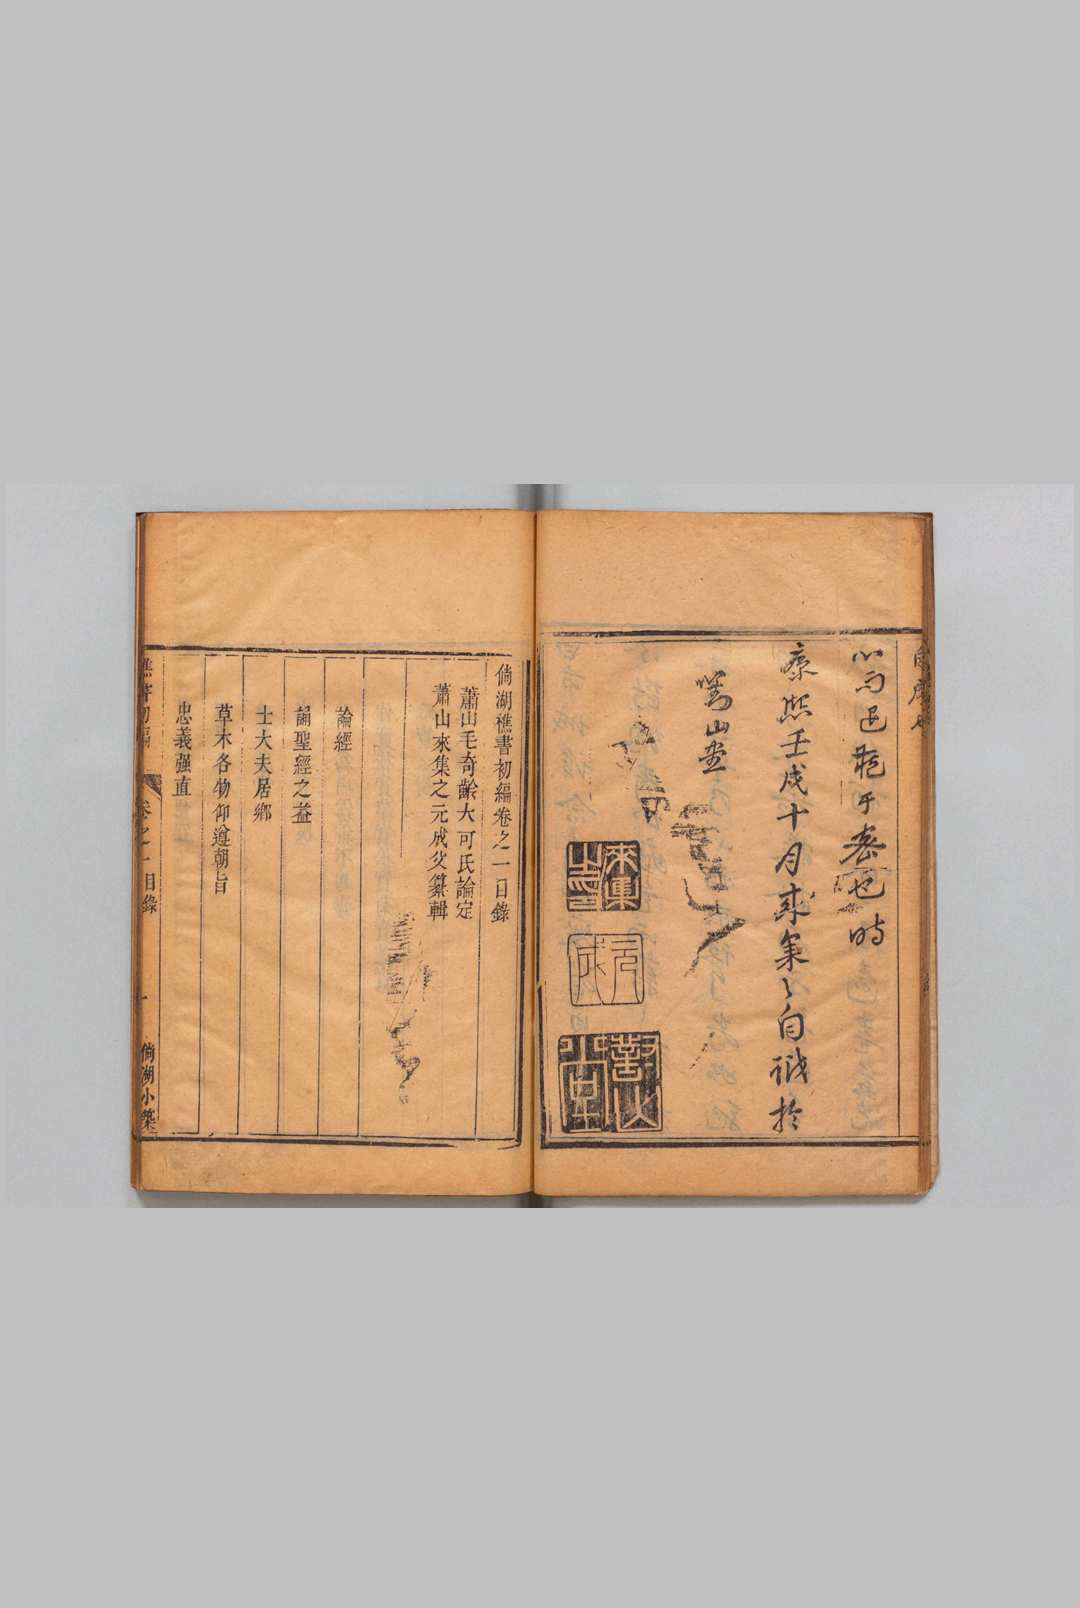 康熙壬戌十月來集之自識於
對山堂
來集之印
元成
對山堂
倘湖樵書初編卷之一目錄
蕭山毛奇齡大可氏論定
蕭山來集之元成父纂輯
論經
誦聖經之益
士大夫居鄉
草木各物仰遵朝旨
忠義強直
樵書初編
卷之一目錄
一
倘湖小築